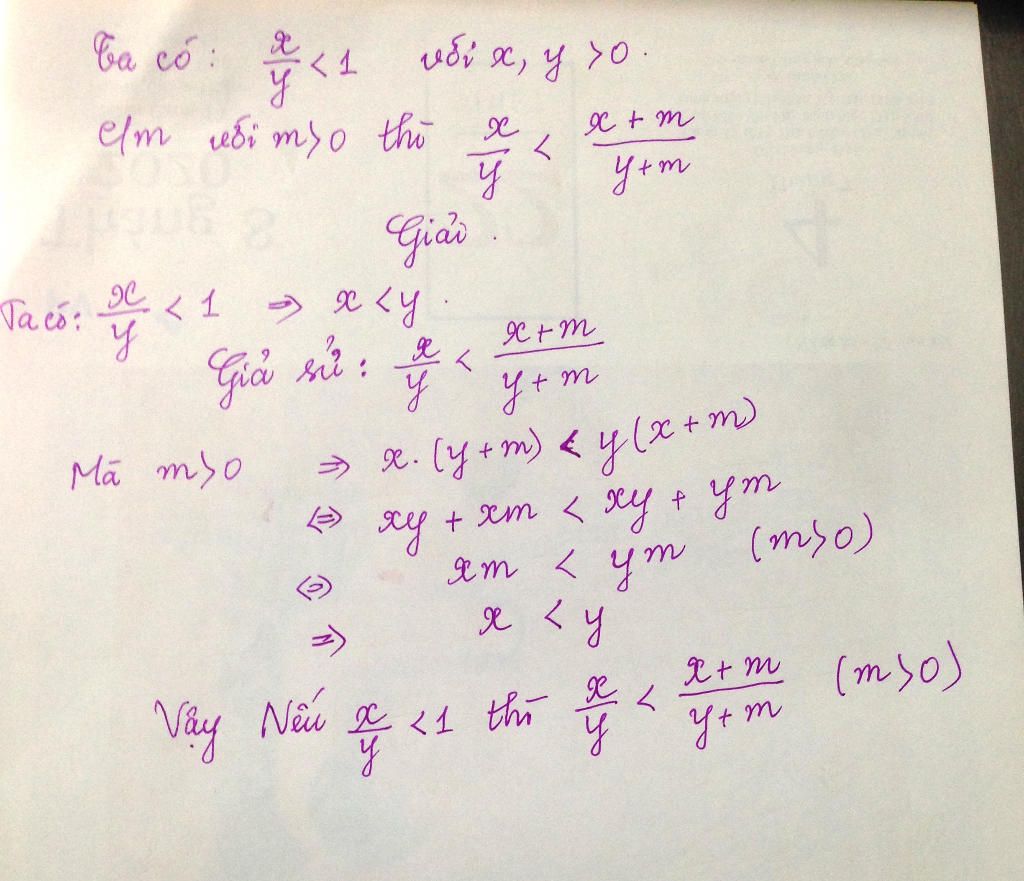 Ta có: x/y < 1 với x, y > 0.
C/m với m > 0 thì x/y < (x + m)/(y + m)
Giải.
Ta có: x/y < 1 ⇒ x < y.
Giả sử: x/y < (x + m)/(y + m)
Mà m > 0 ⇒ x.(y + m) < y(x + m)
⇔ xy + xm < xy + ym
⇔ xm < ym (m > 0)
⇒ x < y
Vậy Nếu x/y < 1 thì x/y < (x + m)/(y + m) (m > 0)